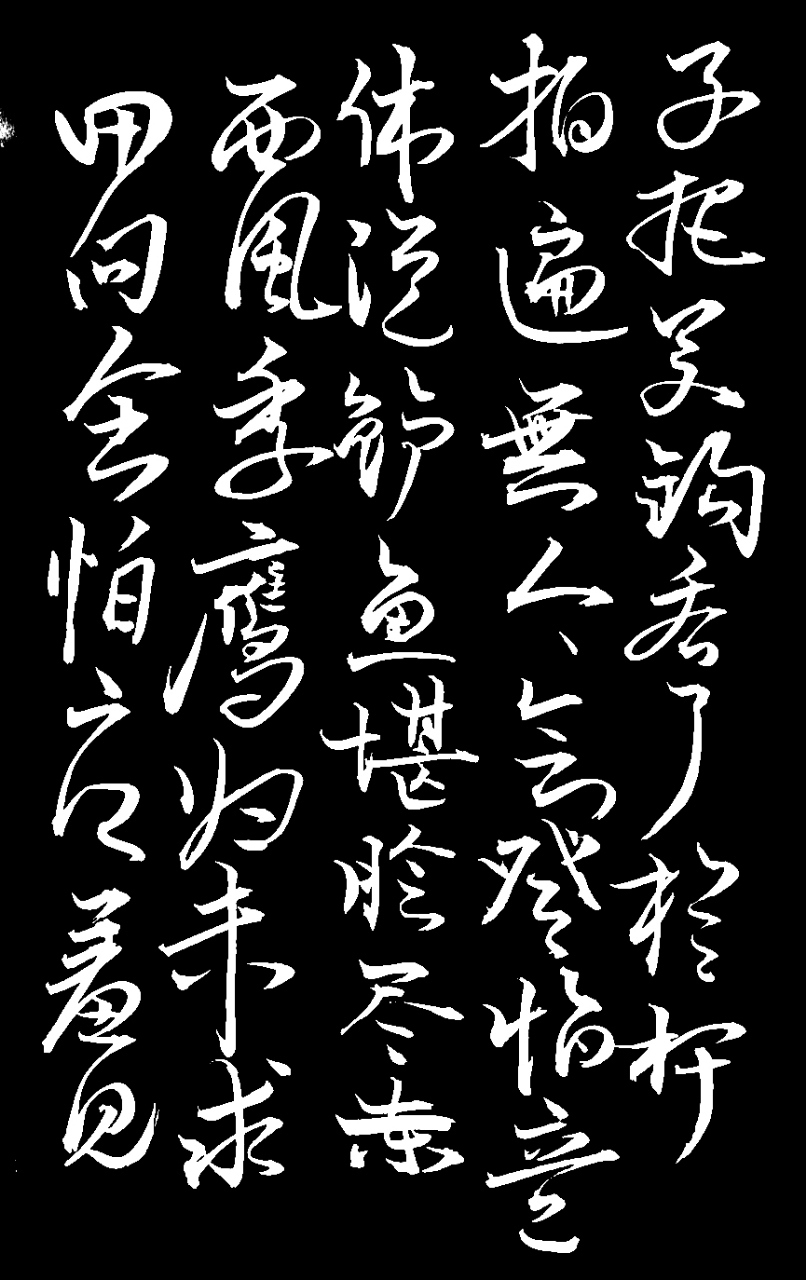 子把吴鈎看了栏杆
拍遍無人会登临意
休说鲈鱼堪脍尽
西風季鷹归未求
田问舍怕应羞见